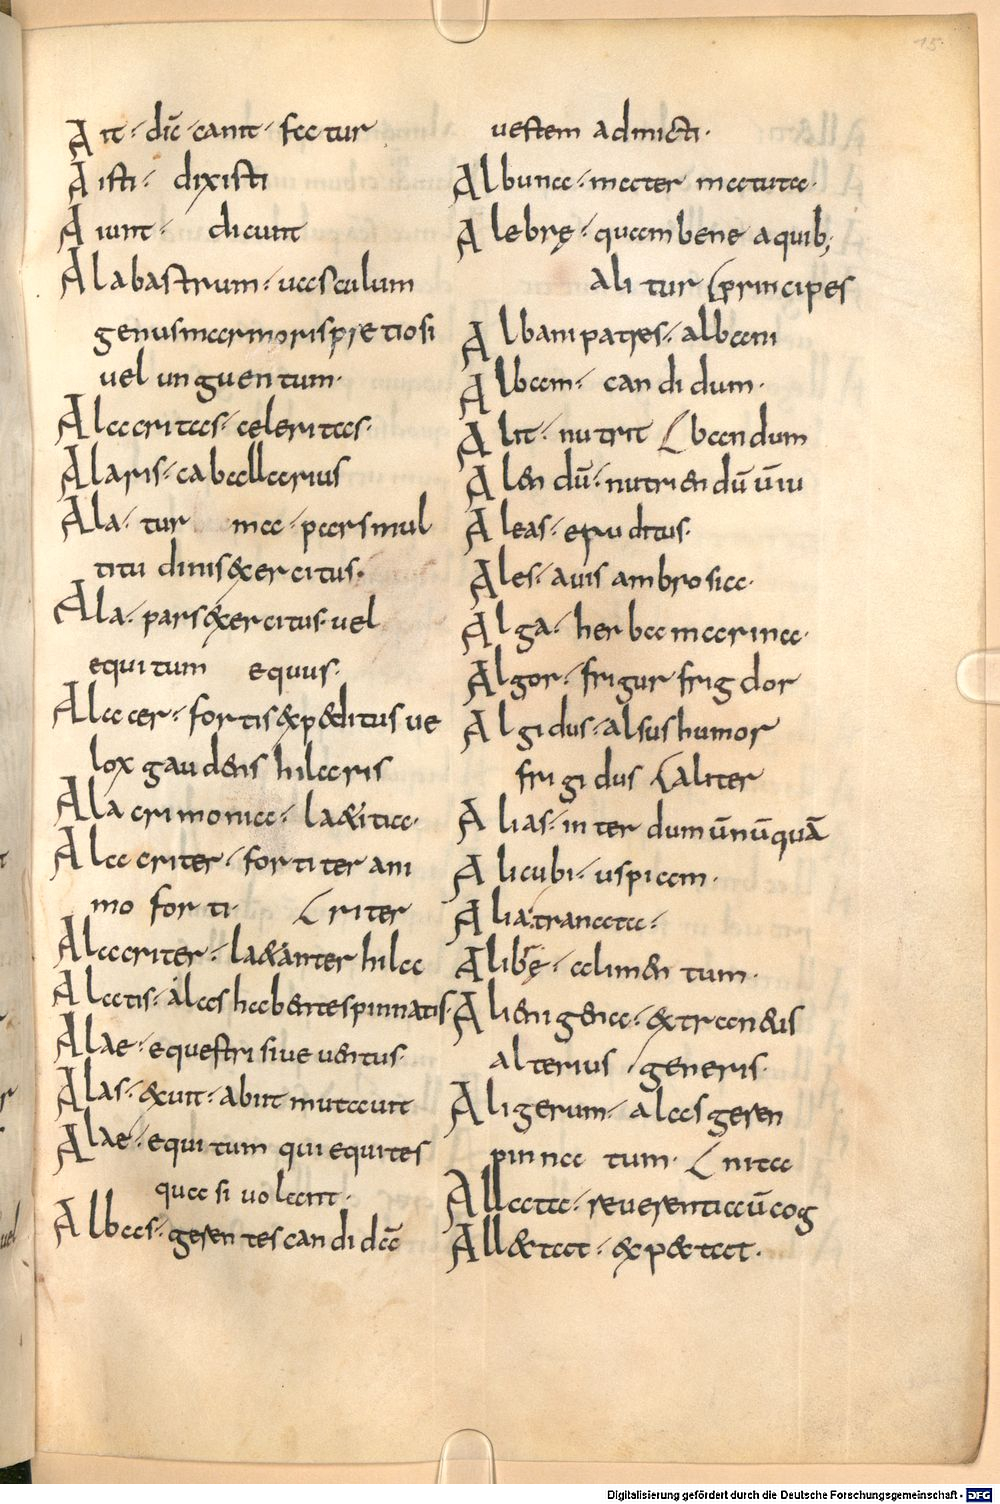 15.
Ait · dic̄ · canit · fatur
Aisti · dixisti
Aiunt · dicunt
Alabastrum · uasculum
genus marmoris pretiosi
uel unguentum ·
Alacritas · celeritas ·
Alaris · caballarius
Ala · tur ma · pars mul
titudinis &xercitus ·
Ala · pars &xercitus · uel
equitum equus ·
Alacer · fortis &xp&ditus ue
lox gaudens hilaris
Alacrimonia · la&itia ·
Alacriter · fortiter ani
mo forti · riter
Alacriter · la&anter hila
Alatis · alas habentes pinnatis ·
Alae · equestri siue uentus ·
Alas · &xuit · abiit mutauit
Alae · equitum qui equites
quasi uolant ·
Albas · gerentes candidā
uestem admicti ·
Albunea · mater matuta ·
Alebrę · quam bene a quib;
alitur principes
Albani patres · albani
Albam · candidum ·
Alit · nutrit bandum
Alendū · nutriendū ūiu
Aleas · eruditus ·
Ales · auis ambrosia ·
Alga · herba marina ·
Algor · frigur frigdor
Algidus · alsus humor
frigidus aliter
Alias · interdum ūnūquā
Alicubi · uspiam ·
Alia: tranata ·
Alibrę · alimentum ·
Alienigena · &xtran&is
alterius generis ·
Aligerum · alas geren
pinnatum · nita
Allata · reuerentia ūcog
All&tat · &xp&tat ·
Digitalisierung gefördert durch die Deutsche Forschungsgemeinschaft - DFG